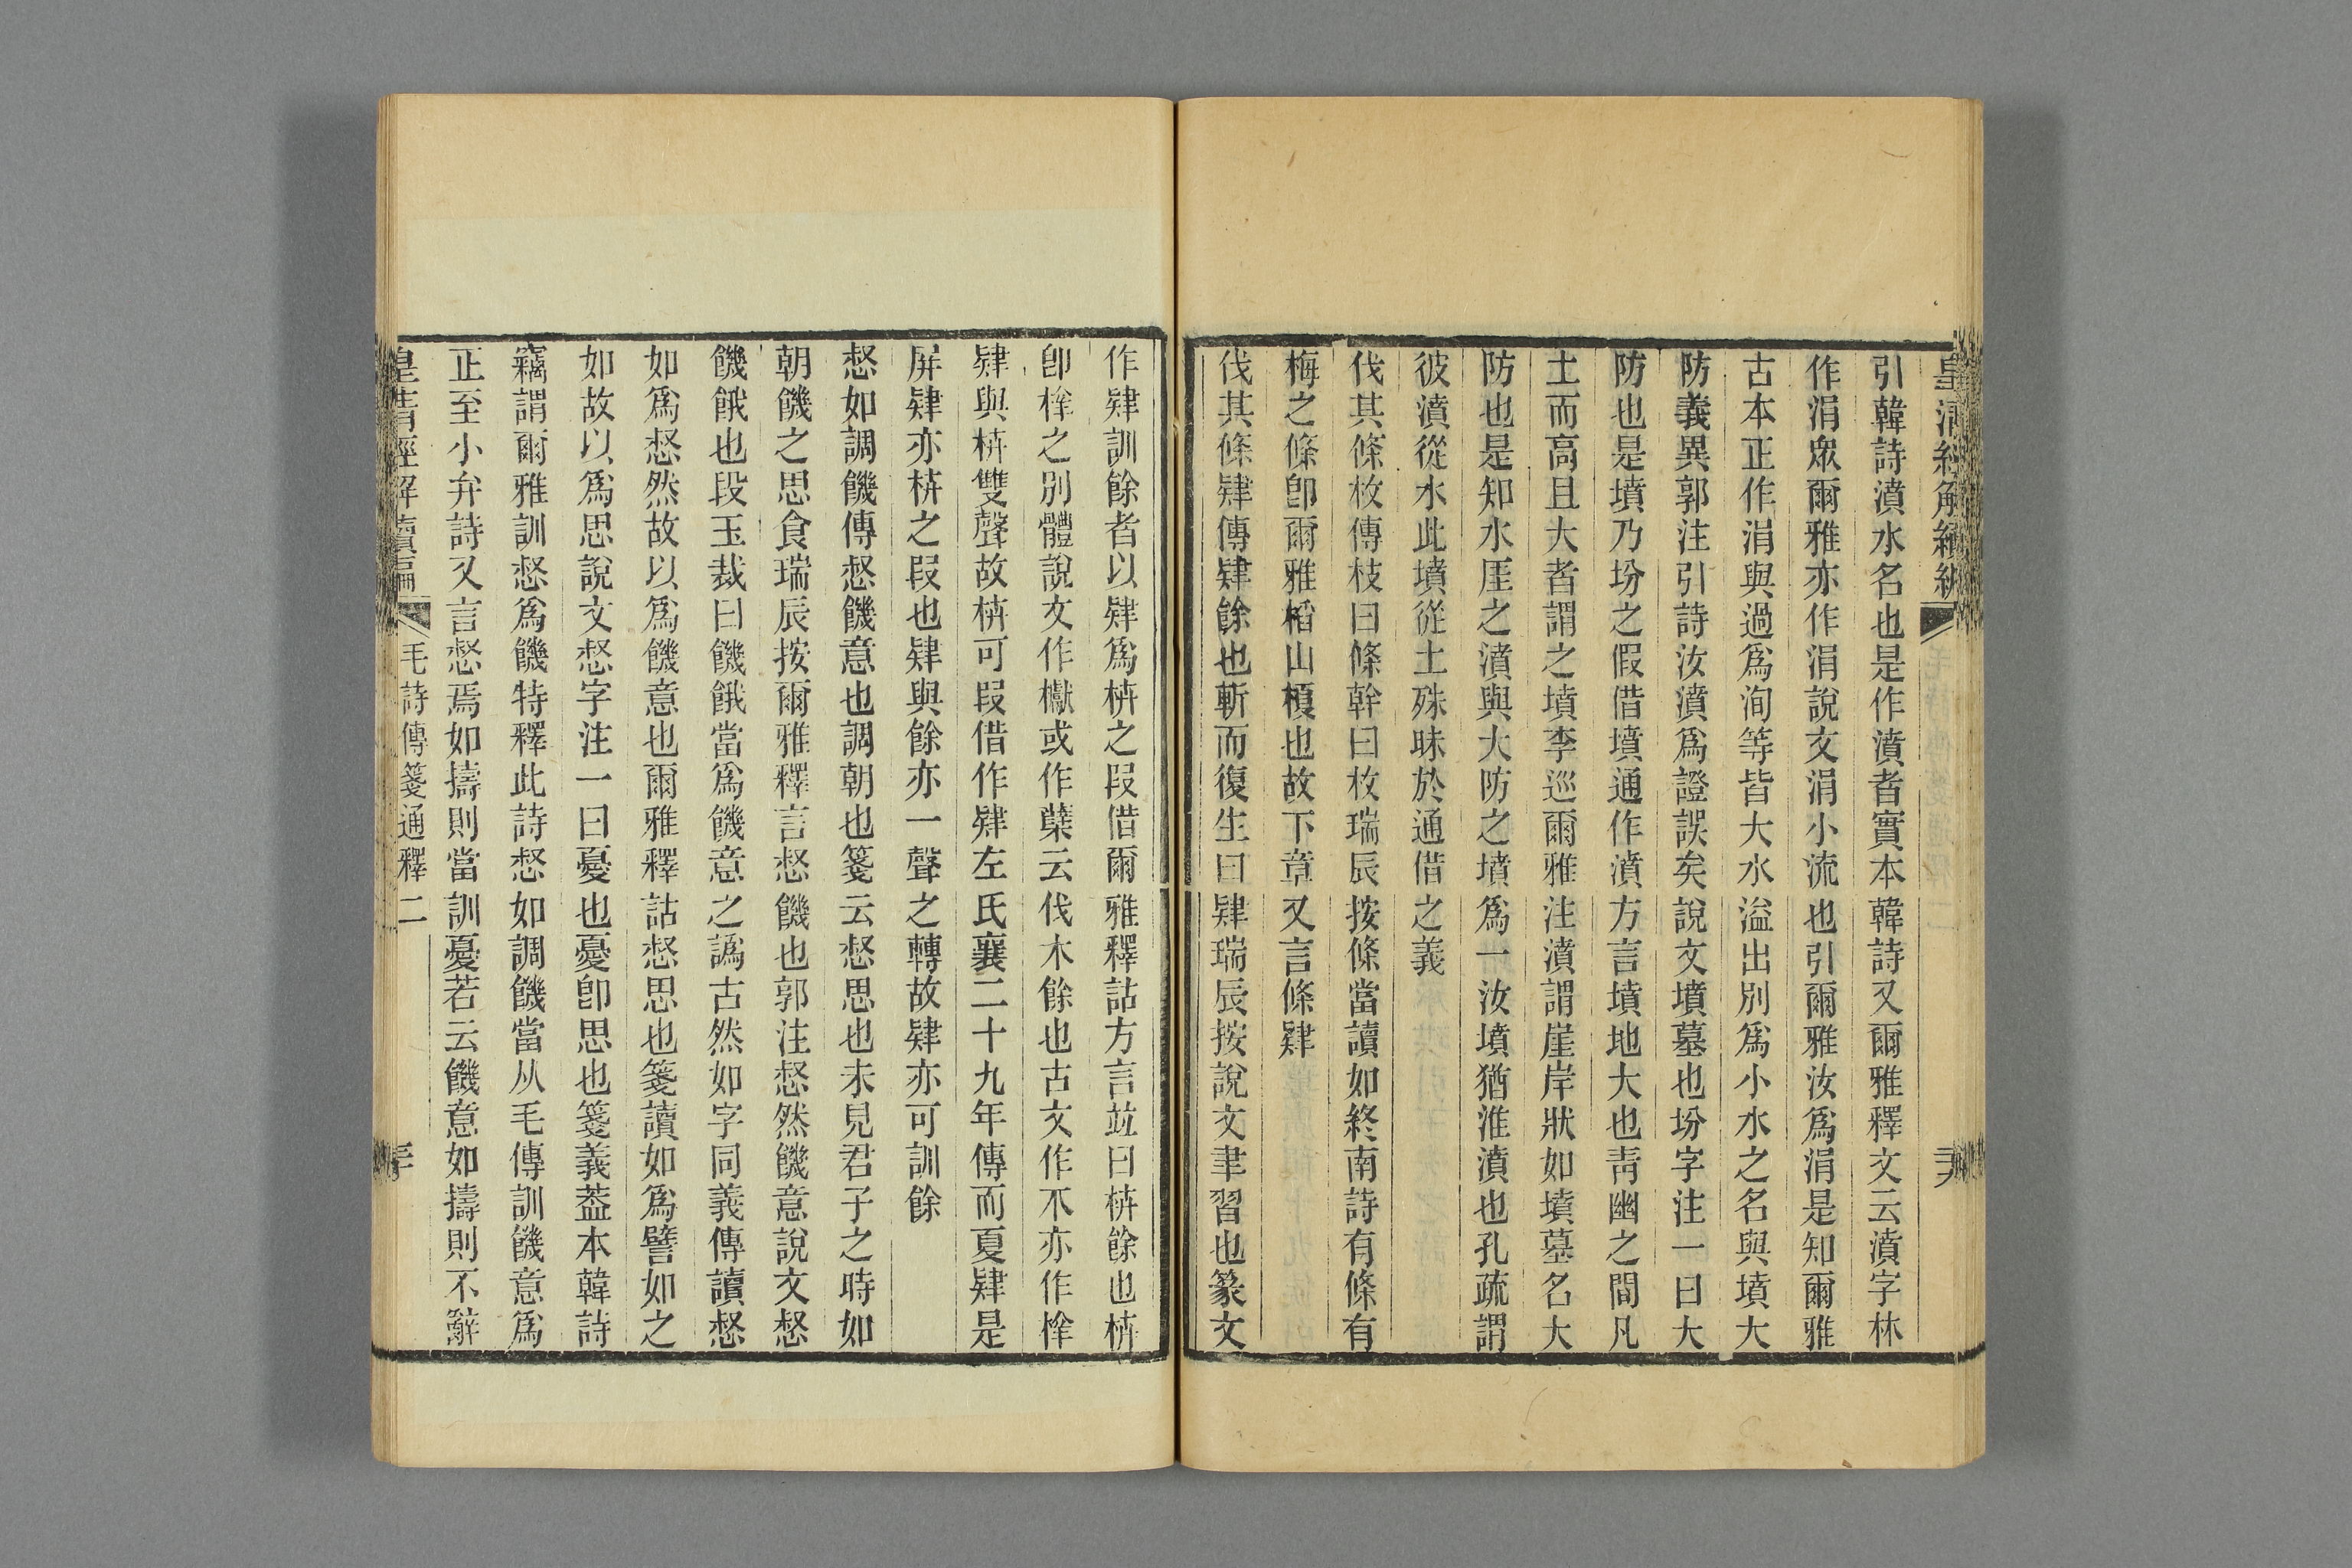 引韓詩濆水名也是作濆者實本韓詩又爾雅釋文云濆字林
作涓眾爾雅亦作涓說文涓小流也引爾雅汝爲涓是知爾雅
古本正作涓與過爲洵等皆大水溢出別爲小水之名與墳大
防義異郭注引詩汝濆爲證誤矣說文墳墓也坋字注一曰大
防也是墳乃坋之假借墳通作濆方言墳地大也靑幽之間凡
土而高且大者謂之墳李巡爾雅注濆謂崖岸狀如墳墓名大
防也是知水厓之濆與大防之墳爲一汝墳猶淮濆也孔疏謂
彼濆從水此墳從土殊昧於通借之義
伐其條枚傳枝曰條幹曰枚瑞辰按條當讀如終南詩有條有
梅之條卽爾雅槄山榎也故下章又言條肄
伐其條肄傳肄餘也斬而復生曰肄瑞辰按說文肄習也篆文
作肄訓餘者以肄爲枿之叚借爾雅釋詁方言竝曰枿餘也枿
卽櫱之別體說文作櫱或作蘖云伐木餘也古文作不亦作㮆
肄與枿雙聲故枿可叚借作肄左氏襄二十九年傳而夏肄是
屏肄亦枿之叚也肄與餘亦一聲之轉故肄亦可訓餘
惄如調饑傳惄饑意也調朝也箋云惄思也未見君子之時如
朝饑之思食瑞辰按爾雅釋言惄饑也郭注惄然饑意說文惄
饑餓也段玉裁曰饑餓當爲饑意之譌古然如字同義傳讀惄
如爲惄然故以爲饑意也爾雅釋詁惄思也箋讀如爲譬如之
如故以爲思說文惄字注一曰憂也憂卽思也箋義葢本韓詩
竊謂爾雅訓惄爲饑特釋此詩惄如調饑當从毛傳訓饑意爲
正至小弁詩又言惄焉如擣則當訓憂若云饑意如擣則不辭
皇淸經解續編 毛詩傳箋通釋二